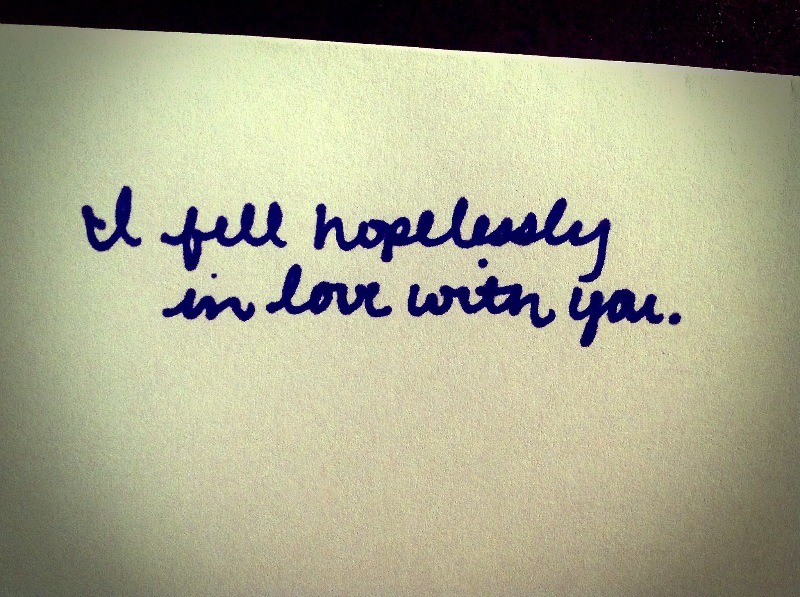 I fell hopelessly
in love with you.